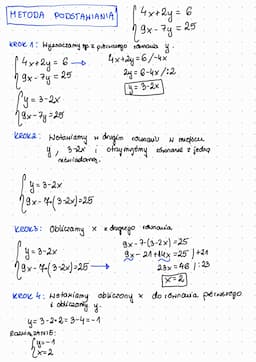 METODA PODSTAWIANIA
4x+2y = 6
9x - 7y = 25
KROK 1: Wyznaczamy np z pierwszego równania y.
4x+2y = 6 → 4x+2y=6 /-4x
9x-7y = 25 2y = 6-4x /:2
y = 3-2x
y = 3-2x
9x-7y=25
KROK2: Wstawiamy w drugim równaniu w miejsce
y, 3-2x i otrzymujemy równanie z jedną
niewiadomą.
y = 3-2x
9x-7·(3-2x)=25
KROK3: Obliczamy x z drugiego równania
9x-7·(3-2x)=25
y = 3-2x 9x-21+14x = 25 /+21
9x-7·(3-2x)=25 → 23x = 46 /:23
x = 2
KROK 4: Wstawiamy obliczony x do równania pierwszego
i obliczamy y.
y = 3-2·2 = 3-4 = -1
ROZWIĄZANIE:
y = -1
x = 2